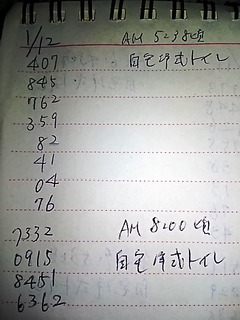 1/12 AM 5:38頃
407 自宅洋式トイレ
845
762
359
82
41
04
76
7332 AM 8:00頃
0915 自宅洋式トイレ
8451
6362